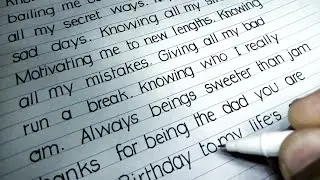 bailing me out
all my secret ways. Knowing
sad days. Knowing all my
Motivating me to new lengths. Knowing
all my mistakes. Giving all my bad
run a break. Knowing who I really
am. Always beings sweeter than jam
thanks for being the dad you are
Birthday to my life's